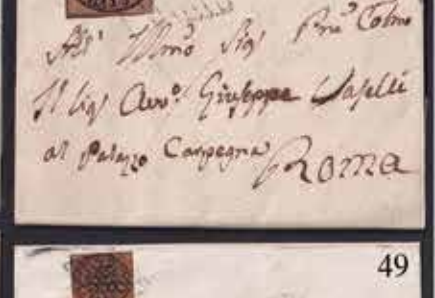 All' Illmo Sig Prne Colmo
Il Sig Avvo. Giuseppe Vaselli
al Palazzo Carpegna
Roma
49